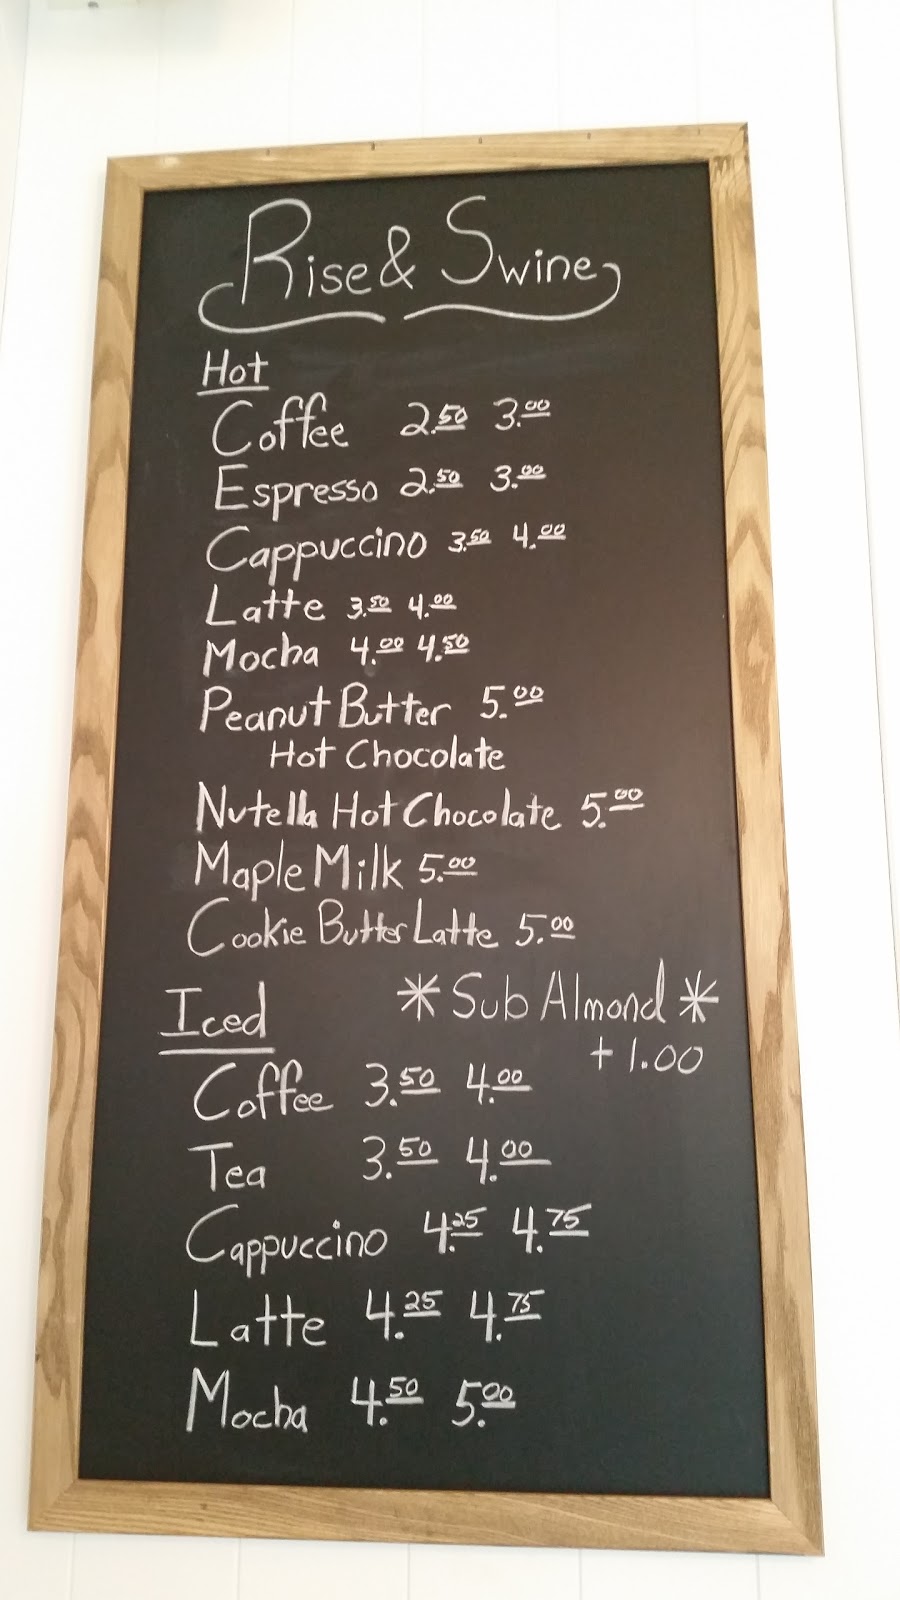 Rise & Swine
Hot
Coffee 2.50 3.00
Espresso 2.50 3.00
Cappuccino 3.50 4.00
Latte 3.50 4.00
Mocha 4.00 4.50
Peanut Butter 5.00
Hot Chocolate
Nutella Hot Chocolate 5.00
Maple Milk 5.00
Cookie Butter Latte 5.00
* Sub Almond *
+ 1.00
Iced
Coffee 3.50 4.00
Tea 3.50 4.00
Cappuccino 4.25 4.75
Latte 4.25 4.75
Mocha 4.50 5.00